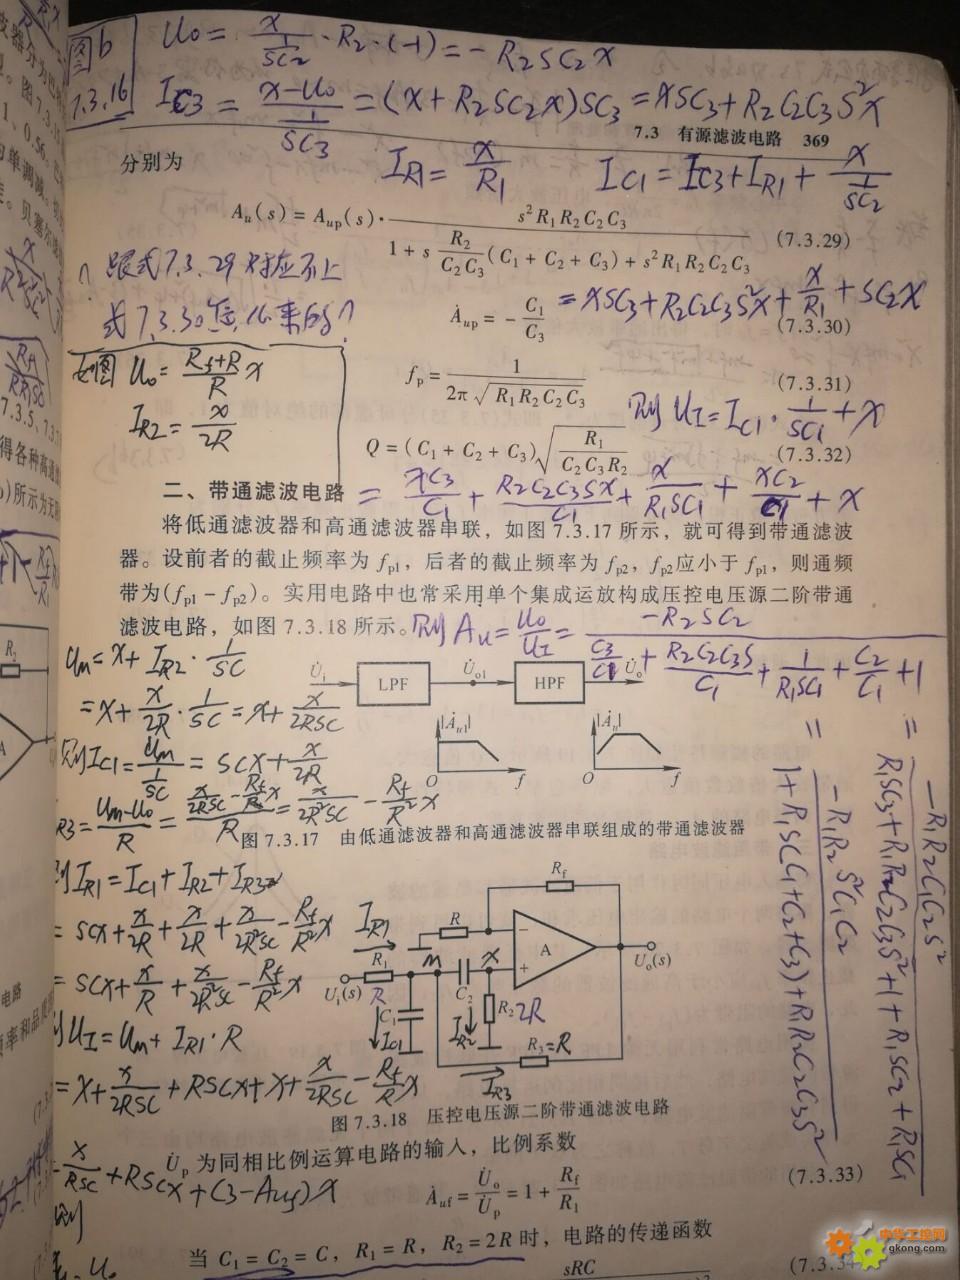 图b
7.3.16
U₀ = x/(1/SC₂) · R₂ · (-1) = -R₂SC₂x
I_C3 = (x-U₀)/(1/SC₃) = (x+R₂SC₂x)SC₃ = xSC₃+R₂C₂C₃S²x
7.3 有源滤波电路 369
分别为
I_R1 = x/R₁ I_C1 = I_C3+I_R1+ x/(1/SC₂)
A_u(s) = A_up(s) · s²R₁R₂C₂C₃ / (1 + s R₂/(C₂C₃) (C₁ + C₂ + C₃) + s²R₁R₂C₂C₃) (7.3.29)
跟式7.3.29对应不上
式7.3.30怎么来的?
= xSC₃+R₂C₂C₃S²x + x/R₁ + SC₂x
Ȧ_up = - C₁/C₃ (7.3.30)
如图 U₀ = (R_f+R)/R x
I_R2 = x/2R
f_p = 1/(2π√(R₁R₂C₂C₃)) (7.3.31)
则 U_I = I_C1 · 1/SC₁ + x
Q = (C₁ + C₂ + C₃)√(R₁/(C₂C₃R₂)) (7.3.32)
= xC₃/C₁ + R₂C₂C₃Sx/C₁ + x/(R₁SC₁) + xC₂/C₁ + x
二、带通滤波电路
将低通滤波器和高通滤波器串联，如图 7.3.17 所示，就可得到带通滤波
器。设前者的截止频率为 f_p1，后者的截止频率为 f_p2，f_p2应小于 f_p1，则通频
带为(f_p1 - f_p2)。实用电路中也常采用单个集成运放构成压控电压源二阶带通
滤波电路，如图 7.3.18 所示。
则 A_u = U₀/U_I = -R₂SC₂ / (C₃/C₁ + R₂C₂C₃S/C₁ + 1/(R₁SC₁) + C₂/C₁ + 1)
= -R₁R₂C₁C₂S² / (R₁SC₃+R₁R₂C₂C₃S²+1+R₁SC₂+R₁SC₁)
= -R₁R₂S²C₁C₂ / (1+R₁S(C₁+C₂+C₃)+R₁R₂C₂C₃S²)
U_m = x + I_R2 · 1/SC
= x + x/2R · 1/SC = x + x/2RSC
则 I_C1 = U_m/(1/SC) = SCx + x/2R
U̇_i LPF U̇_o1 HPF U̇_o
|Ȧ_u1| O f
|Ȧ_u| O f
图 7.3.17 由低通滤波器和高通滤波器串联组成的带通滤波器
I_R1 = I_C1 + I_R2 + I_R3
= SCx + x/2R + x/2R + x/2R²SC - R_f/R² x
= SCx + x/R + x/2R²SC - R_f/R² x
U_I = U_m + I_R1 · R
= x + x/2RSC + RSCx + x + x/2RSC - R_f/R x
= x/RSC + RSCx + (3-A_uf)x
则
R_f
R
A
U_o(s)
I_R1
R₁
R
U_i(s)
M
x
C₂
C₁
I_C1
I_R2
R₂ 2R
R₃=R
I_R3
图 7.3.18 压控电压源二阶带通滤波电路
U̇_p 为同相比例运算电路的输入，比例系数
Ȧ_uf = U̇_o/U̇_p = 1 + R_f/R₁ (7.3.33)
当 C₁ = C₂ = C，R₁ = R，R₂ = 2R 时，电路的传递函数
sRC
中华工控网
gkong.com